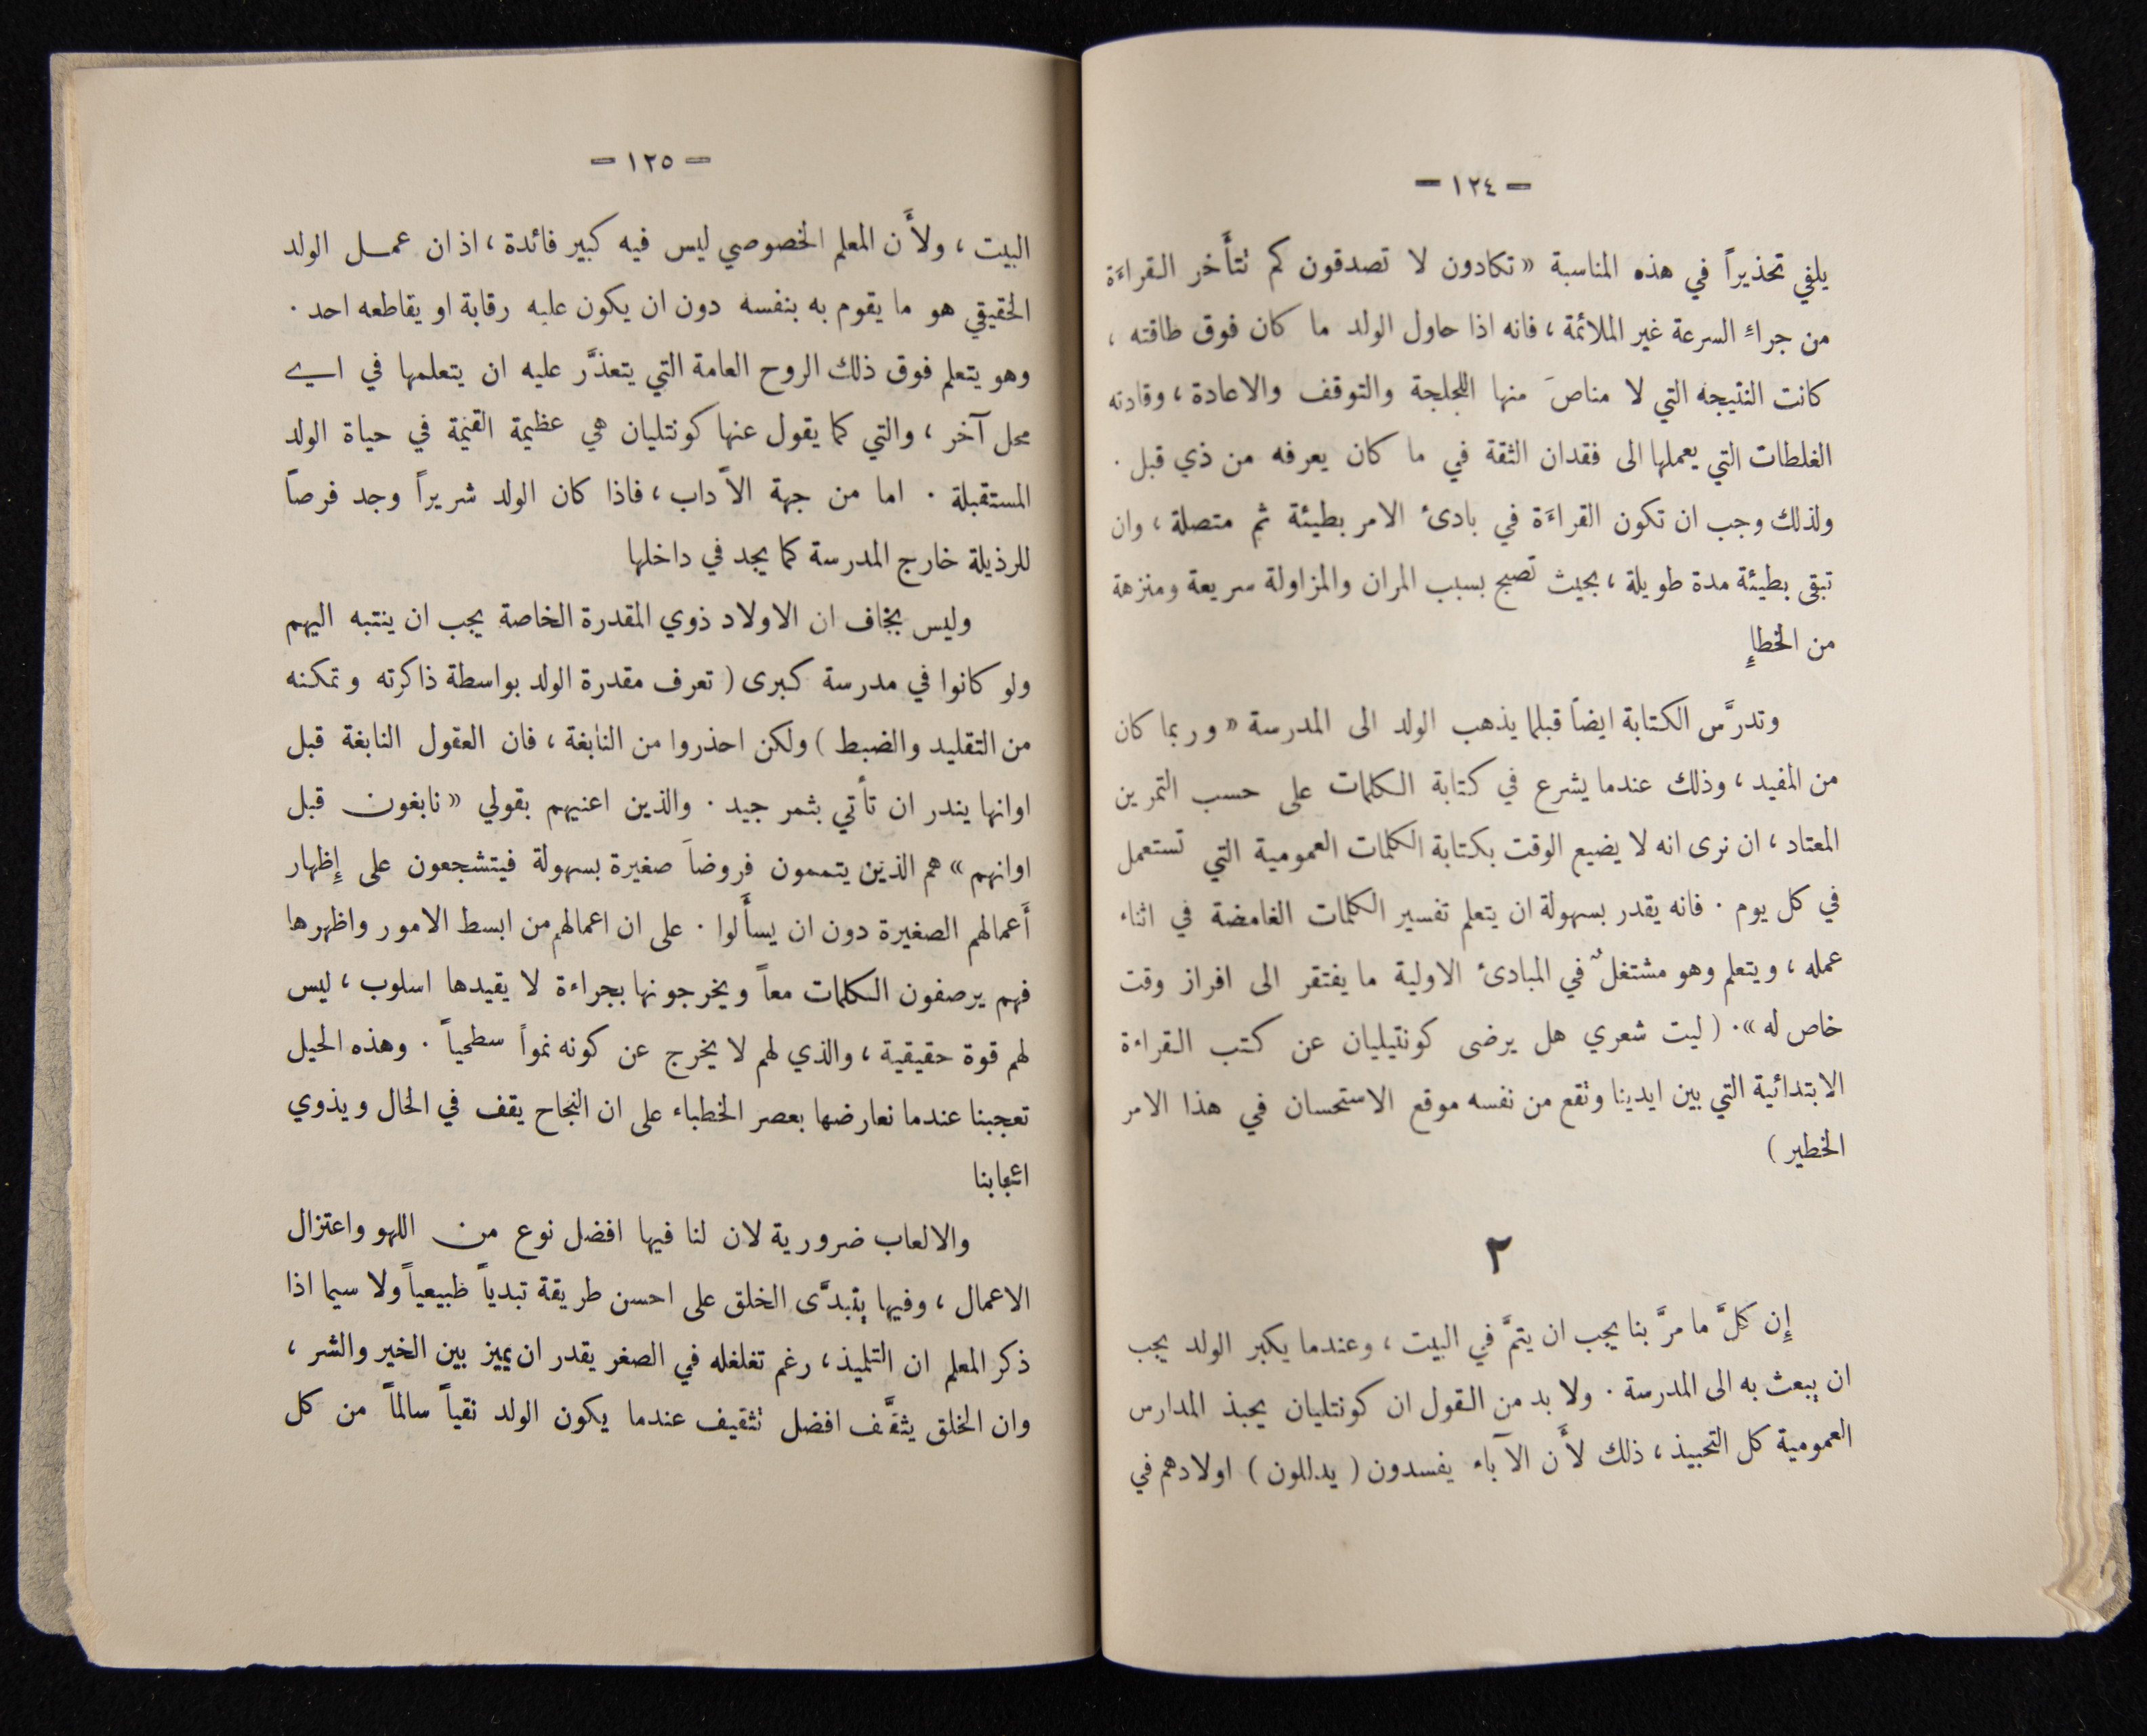 — ١٢٤ —
يلفي تحذيراً في هذه المناسبة « تكادون لا تصدقون كم تتأَخر القراءَة
من جراءِ السرعة غير الملائمة ، فانه اذا حاول الولد ما كان فوق طاقته ،
كانت النتيجه التي لا مناصَ منها اللجلجة والتوقف والاعادة ، وقادته
الغلطات التي يعملها الى فقدان الثقة في ما كان يعرفه من ذي قبل .
ولذلك وجب ان تكون القراءَة في بادئ الامر بطيئة ثم متصلة ، وان
تبقى بطيئة مدة طويلة ، بحيث تصبح بسبب المران والمزاولة سريعة ومنزهة
من الخطإِ
وتدرَّس الكتابة ايضاً قبلما يذهب الولد الى المدرسة « وربما كان
من المفيد ، وذلك عندما يشرع في كتابة الكلمات على حسب التمرين
المعتاد ، ان نرى انه لا يضيع الوقت بكتابة الكلمات العمومية التي تستعمل
في كل يوم . فانه يقدر بسهولة ان يتعلم تفسير الكلمات الغامضة في اثناء
عمله ، ويتعلم وهو مشتغلٌ في المبادئ الاولية ما يفتقر الى افراز وقت
خاص له ». ( ليت شعري هل يرضى كونتيليان عن كتب القراءة
الابتدائية التي بين ايدينا وتقع من نفسه موقع الاستحسان في هذا الامر
الخطير )
٢
إِن كلَّ ما مرَّ بنا يجب ان يتمَّ في البيت ، وعندما يكبر الولد يجب
ان يبعث به الى المدرسة . ولا بد من القول ان كونتليان يحبذ المدارس
العمومية كل التحبيذ ، ذلك لأَن الآباء يفسدون ( يدللون ) اولادهم في
— ١٢٥ —
البيت ، ولأَن المعلم الخصوصي ليس فيه كبير فائدة ، اذ ان عمل الولد
الحقيقي هو ما يقوم به بنفسه دون ان يكون عليه رقابة او يقاطعه احد .
وهو يتعلم فوق ذلك الروح العامة التي يتعذَّر عليه ان يتعلمها في اي
محل آخر ، والتي كما يقول عنها كونتليان هي عظيمة القيمة في حياة الولد
المستقبلة . اما من جهة الآداب ، فاذا كان الولد شريراً وجد فرصاً
للرذيلة خارج المدرسة كما يجد في داخلها
وليس بخاف ان الاولاد ذوي المقدرة الخاصة يجب ان ينتبه اليهم
ولو كانوا في مدرسة كبرى ( تعرف مقدرة الولد بواسطة ذاكرته وتمكنه
من التقليد والضبط ) ولكن احذروا من النابغة ، فان العقول النابغة قبل
اوانها يندر ان تأتي بثمر جيد . والذين اعنيهم بقولي « نابغون قبل
اوانهم » هم الذين يتممون فروضاً صغيرة بسهولة فيتشجعون على إِظهار
أَعمالهم الصغيرة دون ان يسأَلوا . على ان اعمالهم من ابسط الامور واظهرها
فهم يرصفون الكلمات معاً ويخرجونها بجراءة لا يقيدها اسلوب ، ليس
لهم قوة حقيقية ، والذي لهم لا يخرج عن كونه نمواً سطحياً . وهذه الحيل
تعجبنا عندما نعارضها بعصر الخطباء على ان النجاح يقف في الحال ويذوي
اعجابنا
والالعاب ضرورية لان لنا فيها افضل نوع من اللهو واعتزال
الاعمال ، وفيها يتبدَّى الخلق على احسن طريقة تبدياً طبيعياً ولا سيما اذا
ذكر المعلم ان التلميذ ، رغم تغلغله في الصغر يقدر ان يميز بين الخير والشر ،
وان الخلق يثقَّف افضل تثقيف عندما يكون الولد نقياً سالماً من كل